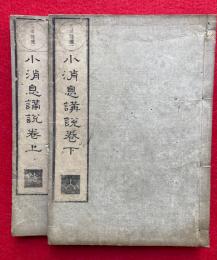 小消息講説卷下
小消息講説卷上